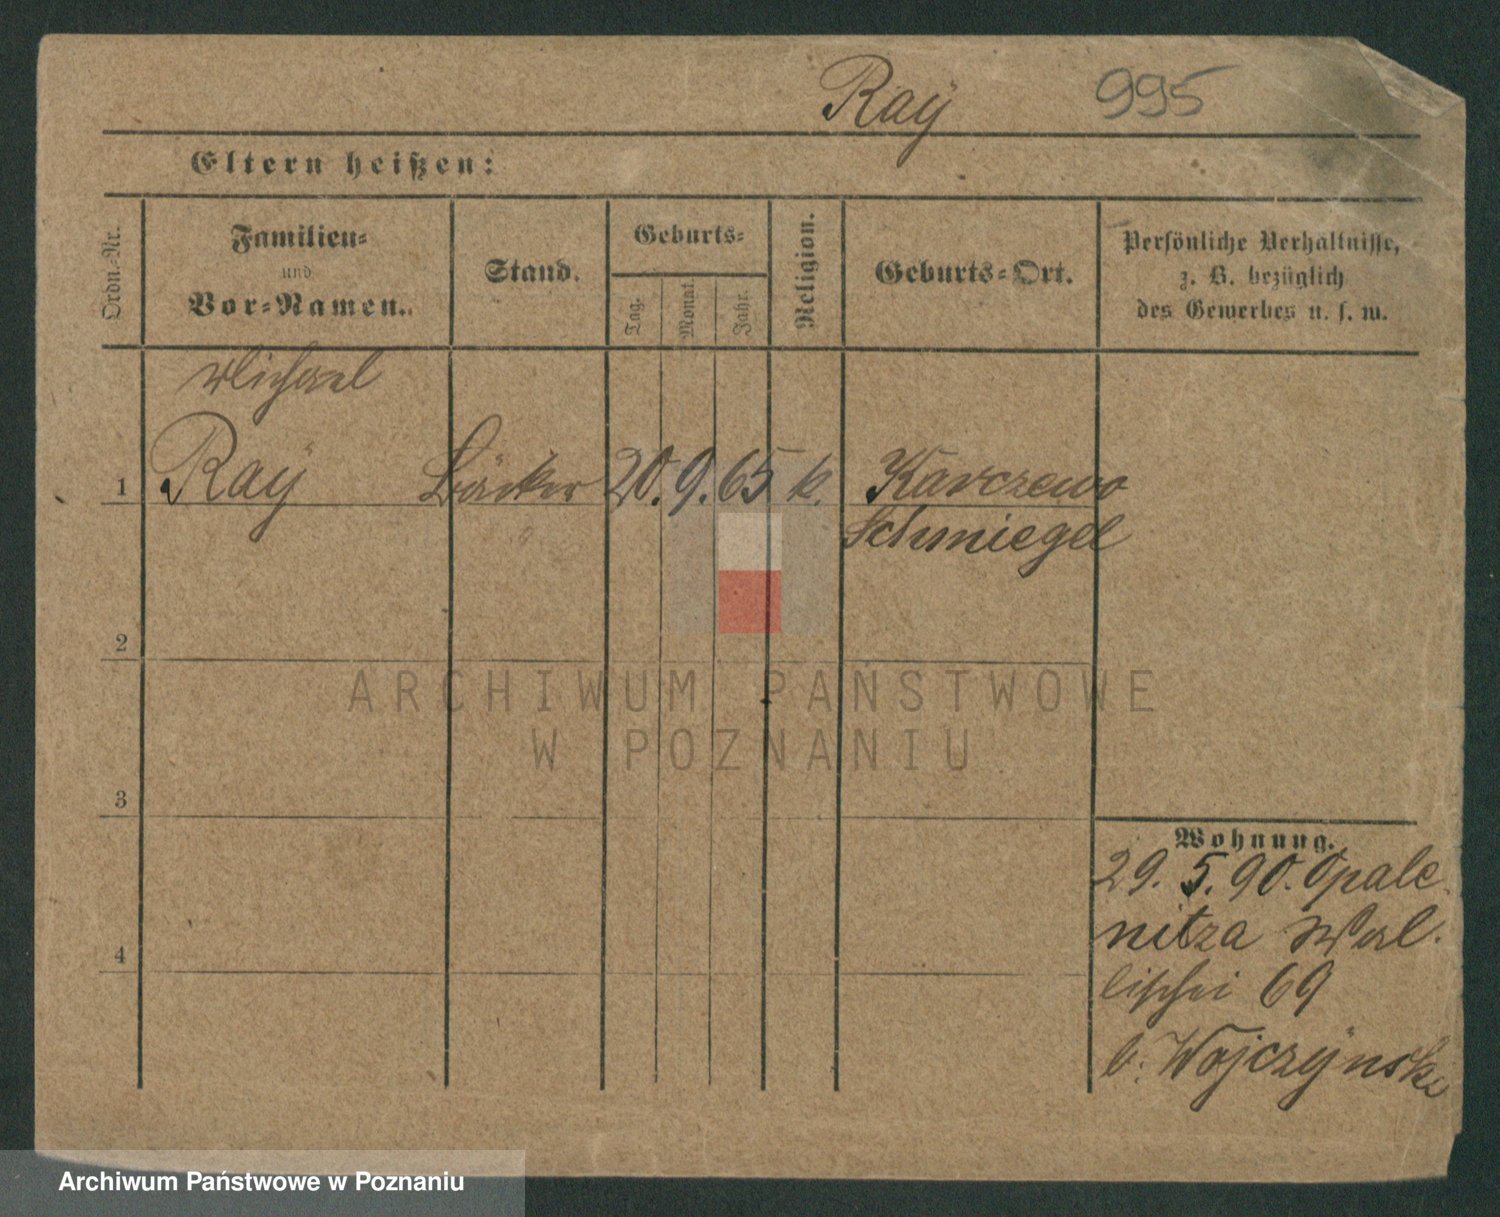 Raÿ 995
Eltern heißen:
Ordn.-Nr.
Familien-
und
Vor-Namen.
Stand.
Geburts-
Tag.
Monat.
Jahr.
Religion.
Geburts-Ort.
Persönliche Verhältnisse,
z. B. bezüglich
des Gewerbes u. s. w.
Michael
1 Raÿ Bäcker 20. 9. 65 k. Karczewo
Schmiegel
2
3
4
Wohnung.
29. 5. 90. Opale
nitza Wal.
lischei 69
b. Wojczÿnski
ARCHIWUM PAŃSTWOWE
W POZNANIU
Archiwum Państwowe w Poznaniu